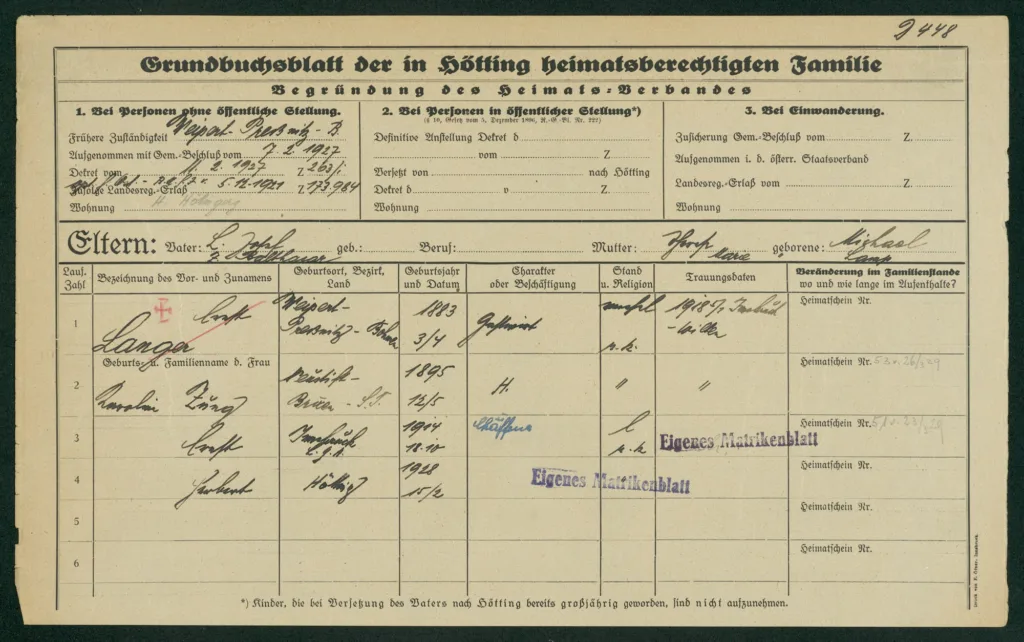 2448
Grundbuchsblatt der in Hötting heimatsberechtigten Familie
Begründung des Heimats-Verbandes
1. Bei Personen ohne öffentliche Stellung.
Frühere Zuständigkeit Weipert-Pressnitz-B.
Aufgenommen mit Gem.-Beschluß vom 7. 2. 1927
Dekret vom 11. 2. 1927 Z. 263/1
Zufolge Landesreg.-Erlaß 5. 12. 1921 Z. 173.964
Wohnung
2. Bei Personen in öffentlicher Stellung*)
(§ 10, Gesetz vom 5. Dezember 1896, R.-G.-Bl. Nr. 222)
Definitive Anstellung Dekret d
vom Z.
Versetzt von nach Hötting
Dekret d v Z.
Wohnung
3. Bei Einwanderung.
Zusicherung Gem.-Beschluß vom Z.
Aufgenommen i. d. österr. Staatsverband
Landesreg.-Erlaß vom Z.
Wohnung
Eltern: Vater: L. Josef geb.: Beruf: Mutter: Maria geborene: Michael
Z. Balthasar
Lauf. Zahl
Bezeichnung des Vor- und Zunamens
Geburtsort, Bezirk, Land
Geburtsjahr und Datum
Charakter oder Beschäftigung
Stand u. Religion
Trauungsdaten
Veränderung im Familienstande
wo und wie lange im Aufenthalte?
1 Ernst Langer Weipert-Pressnitz-Böhmen 1883 3/4 Gastwirt r. k. Innsbruck-Wilten Heimatschein Nr.
Geburts- u. Familienname d. Frau
2 Karolin Zung Neustift-Brixen - S.T. 1895 12/5 H. " " Heimatschein Nr.
3 Ernst Innsbruck 1904 18.10 l r. k. Eigenes Matrikenblatt Heimatschein Nr.
4 Herbert Hötting 1928 15/2 Eigenes Matrikenblatt Heimatschein Nr.
5 Heimatschein Nr.
6 Heimatschein Nr.
*) Kinder, die bei Versetzung des Vaters nach Hötting bereits großjährig geworden, sind nicht aufzunehmen.